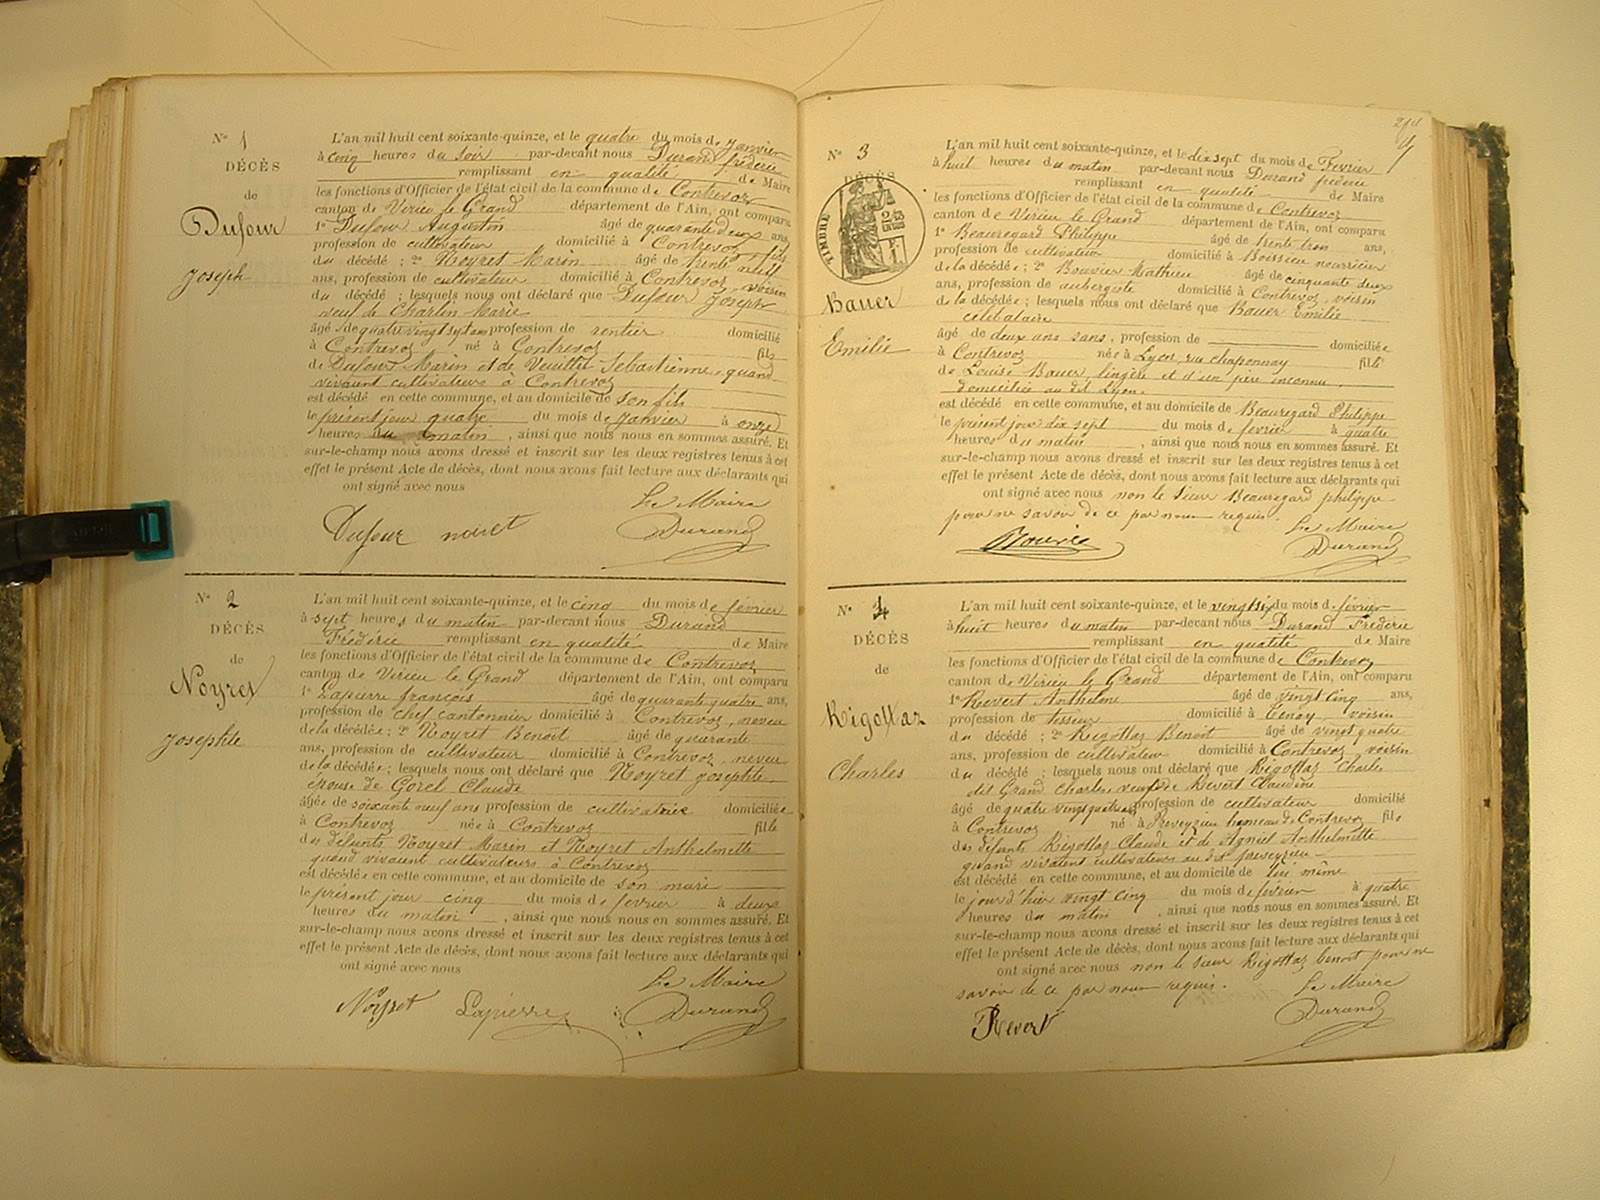 N° 1
DÉCÈS
de
Dufour
Joseph
L'an mil huit cent soixante-quinze, et le quatre du mois de Janvier
à cinq heures du soir par-devant nous Durand frédéric
remplissant en qualité de Maire
les fonctions d'Officier de l'état civil de la commune de Contrevoz
canton de Virieu le Grand département de l'Ain, ont comparu
1° Dufour Augustin âgé de quarante deux ans,
profession de cultivateur domicilié à Contrevoz, fils
du décédé ; 2° Noyret Marin âgé de trente neuf
ans, profession de cultivateur domicilié à Contrevoz voisin
du décédé ; lesquels nous ont déclaré que Dufour Joseph
veuf de Charlin Marie
âgé de quatre vingt sept ans profession de rentier domicilié
à Contrevoz né à Contrevoz fils
de Dufour Marin et de Vuillet Sébastienne, quand
vivaient cultivateurs à Contrevoz
est décédé en cette commune, et au domicile de son fils
le présent jour quatre du mois de Janvier à onze
heures du matin, ainsi que nous nous en sommes assuré. Et
sur-le-champ nous avons dressé et inscrit sur les deux registres tenus à cet
effet le présent Acte de décès, dont nous avons fait lecture aux déclarants qui
ont signé avec nous
Le Maire
Dufour noiret Durand
N° 2
DÉCÈS
de
Noyret
Josephte
L'an mil huit cent soixante-quinze, et le cinq du mois de février
à sept heures du matin par-devant nous Durand
Frédéric remplissant en qualité de Maire
les fonctions d'Officier de l'état civil de la commune de Contrevoz
canton de Virieu le Grand département de l'Ain, ont comparu
1° Lapierre françois âgé de quarante quatre ans,
profession de chef cantonnier domicilié à Contrevoz, neveu
de la décédée ; 2° Noyret Benoit âgé de quarante
ans, profession de cultivateur domicilié à Contrevoz, neveu
de la décédée ; lesquels nous ont déclaré que Noyret Josephte
épouse de Gorel Claude
âgée de soixante neuf ans profession de cultivatrice domiciliée
à Contrevoz née à Contrevoz fille
des défunts Noyret Marin et Noyret Anthelmette
quand vivaient cultivateurs à Contrevoz
est décédée en cette commune, et au domicile de son mari
le présent jour cinq du mois de février à deux
heures du matin, ainsi que nous nous en sommes assuré. Et
sur-le-champ nous avons dressé et inscrit sur les deux registres tenus à cet
effet le présent Acte de décès, dont nous avons fait lecture aux déclarants qui
ont signé avec nous
Le Maire
Noyret Lapierre Durand
N° 3
DÉCÈS
TIMBRE
Bauer
Emilie
L'an mil huit cent soixante-quinze, et le dix sept du mois de Février
à huit heures du matin par-devant nous Durand frédéric
remplissant en qualité de Maire
les fonctions d'Officier de l'état civil de la commune de Contrevoz
canton de Virieu le Grand département de l'Ain, ont comparu
1° Beauregard Philippe âgé de trente trois ans,
profession de cultivateur domicilié à Boissieu nourricier
de la décédée ; 2° Bouvier Mathieu âgé de cinquante deux
ans, profession de aubergiste domicilié à Contrevoz, voisin
de la décédée ; lesquels nous ont déclaré que Bauer Emilie
célibataire
âgé de deux ans sans, profession de domiciliée
à Contrevoz née à Lyon, rue chaponnay fille
de Louise Bauer, lingère et d'un père inconnu.
domiciliée au dit Lyon.
est décédé en cette commune, et au domicile de Beauregard Philippe
le présent jour dix sept du mois de février à quatre
heures du matin, ainsi que nous nous en sommes assuré. Et
sur-le-champ nous avons dressé et inscrit sur les deux registres tenus à cet
effet le présent Acte de décès, dont nous avons fait lecture aux déclarants qui
ont signé avec nous non le sieur Beauregard philippe
pour ne savoir de ce par nous requis.
Le Maire
Bouvier Durand
N° 4
DÉCÈS
de
Rigottaz
Charles
L'an mil huit cent soixante-quinze, et le vingt six du mois de février
à huit heures du matin par-devant nous Durand Frédéric
remplissant en qualité de Maire
les fonctions d'Officier de l'état civil de la commune de Contrevoz
canton de Virieu le Grand département de l'Ain, ont comparu
1° Revert Anthelme âgé de vingt cinq ans,
profession de tisseur domicilié à Tenay voisin
du décédé ; 2° Rigottaz Benoit âgé de vingt quatre
ans, profession de cultivateur domicilié à Contrevoz voisin
du décédé ; lesquels nous ont déclaré que Rigottaz Charles
dit Grand Charles veuf de Revert Claudine
âgé de quatre vingt quatre ans profession de cultivateur domicilié
à Contrevoz né à Preveyzieu hameau de Contrevoz fils
des défunts Rigottaz Claude et de Agniel Anthelmette
quand vivaient cultivateurs au dit preveyzieu
est décédé en cette commune, et au domicile de lui même
le jour d'hier vingt cinq du mois de février à quatre
heures du matin, ainsi que nous nous en sommes assuré. Et
sur-le-champ nous avons dressé et inscrit sur les deux registres tenus à cet
effet le présent Acte de décès, dont nous avons fait lecture aux déclarants qui
ont signé avec nous non le sieur Rigottaz benoit pour ne
savoir de ce par nous requis.
Le Maire
Revert Durand